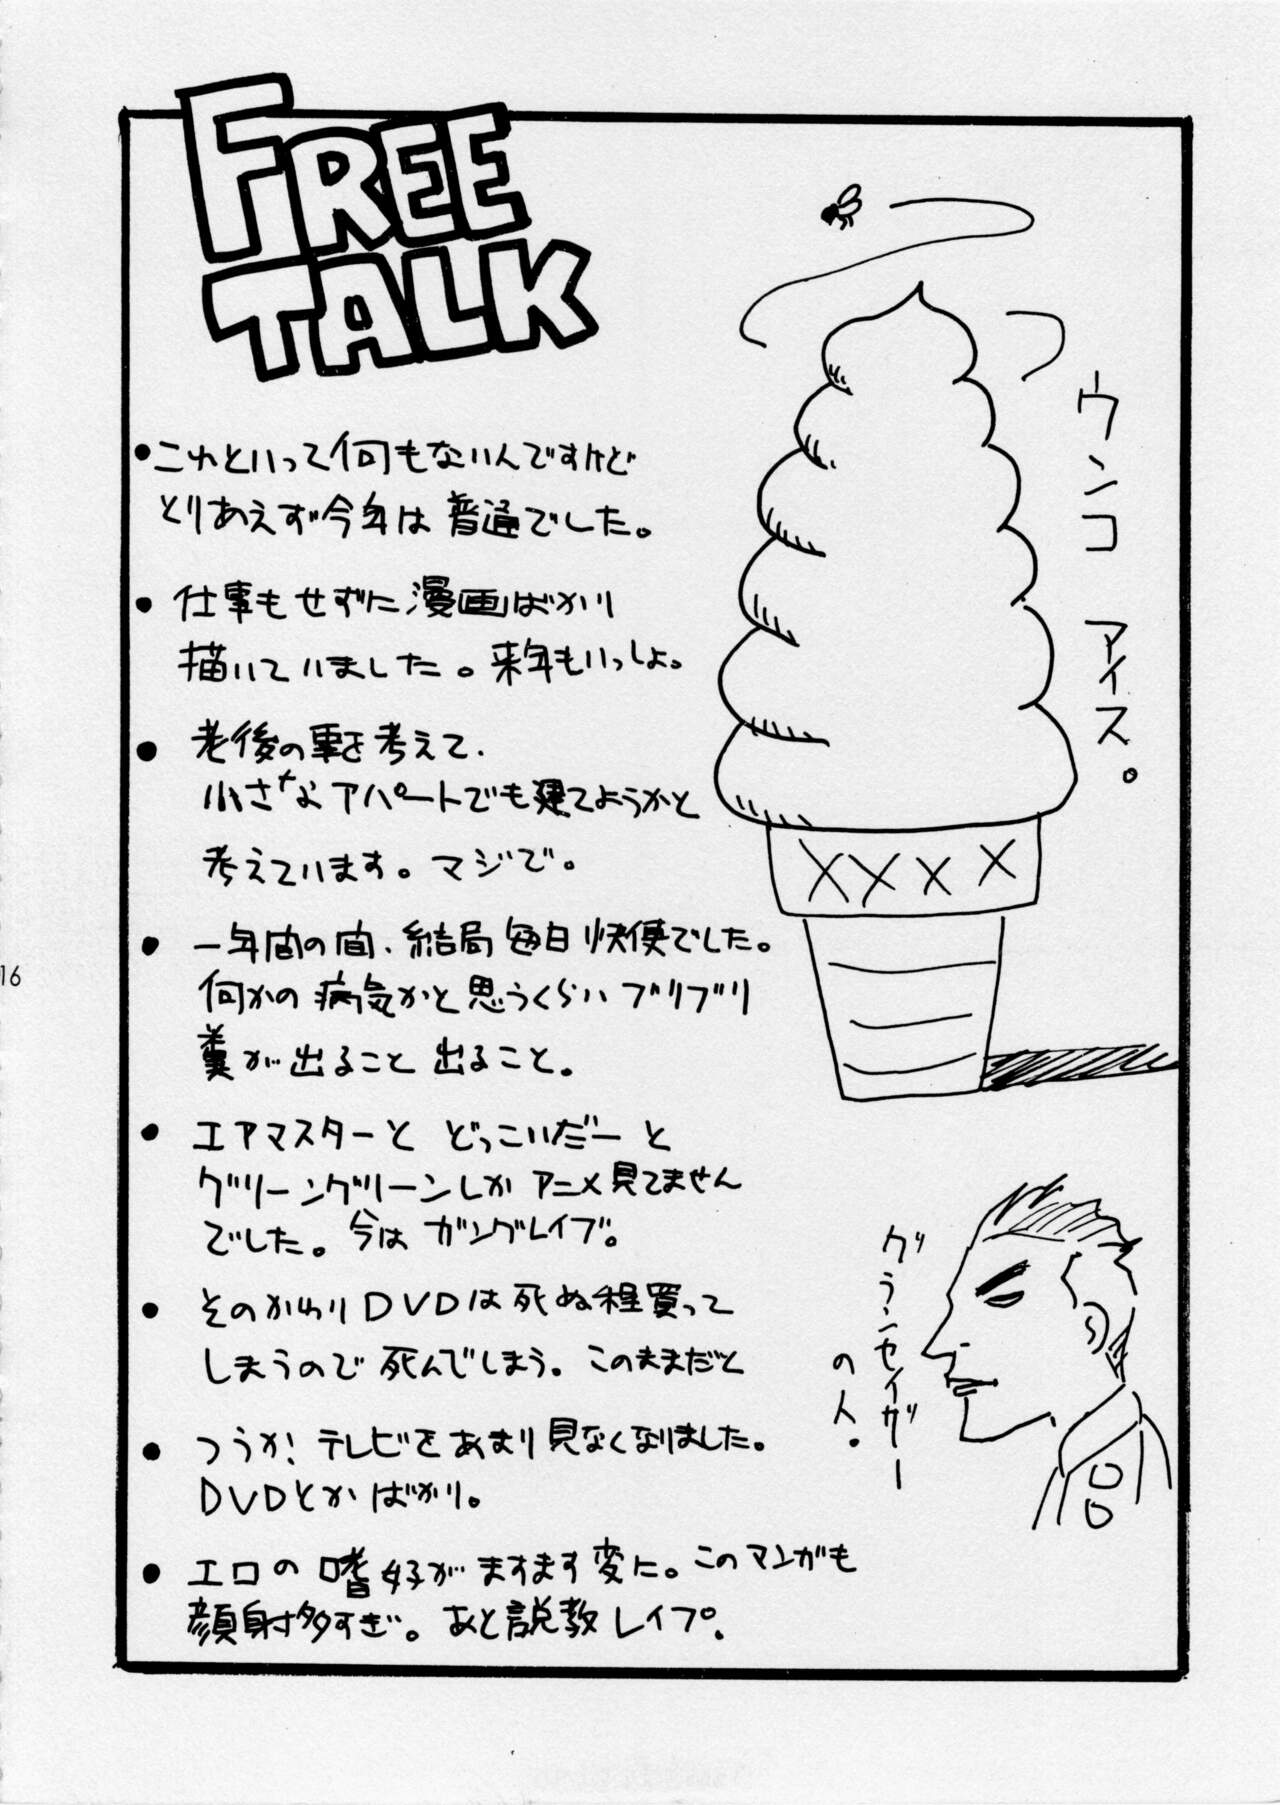 FREE
TALK
ウンコ アイス。
・これといって何もないんですけど
とりあえず今年は普通でした。
・仕事もせずに漫画ばかり
描いていました。来年もいっしょ。
・老後の事を考えて、
小さなアパートでも建てようかと
考えています。マジで。
・一年間の間、結局毎日快便でした。
何かの病気かと思うくらいブリブリ
糞が出ること出ること。
・エアマスターと どっこいだー と
グリーングリーンしかアニメ見てません
でした。今は ガングレイブ。
・そのかわりDVDは死ぬ程買って
しまうので死んでしまう。このままだと
・つうか!テレビをあまり見なくなりました。
DVDとかばかり。
・エロの嗜好がますます変に。このマンガも
顔射多すぎ。あと説教レイプ。
グランセイザー
の人。
16